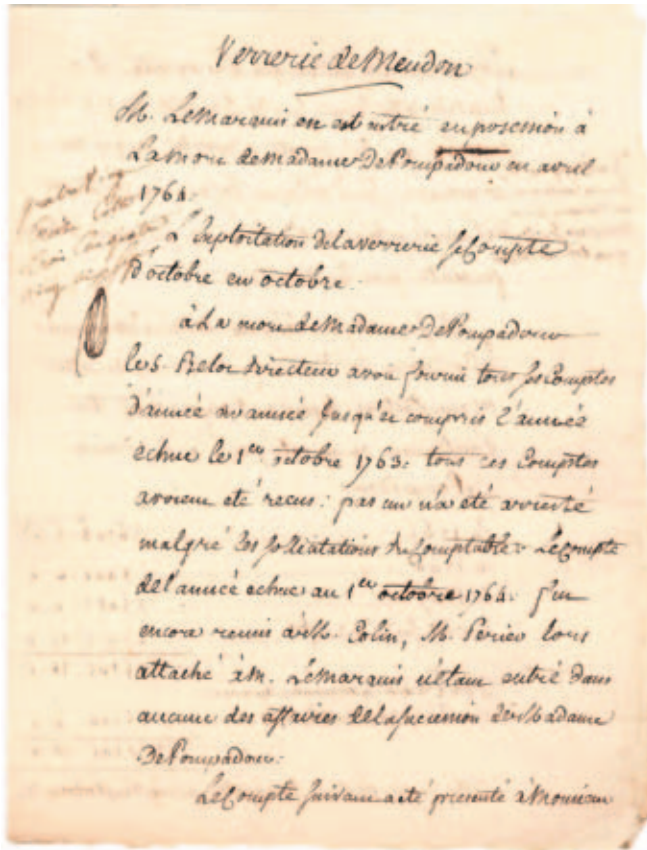 Verrerie de Meudon
M. Le Marquis en est entré en posession à
La mort de Madame De Pompadour en avril
1764.
L'Exploitation de la verrerie se Compte
d'octobre en octobre.
à La mort de Madame De Pompadour
le S. Directeur avoit fourni tous ses Comptes
d'année en année jusqu'et compris l'année
echue le 1er octobre 1763. tous ces Comptes
avoient été recus: pas un n'a été arresté
malgré les sollicitations du Comptable. Le Compte
de l'année echue au 1er octobre 1764. fut
encore remis à M. Colin, M. Perier lors
attaché à M. Le Marquis n'étant entré dans
aucune des affaires de la succession de Madame
De Pompadour.
Le Compte suivant a été presenté à Monsieur